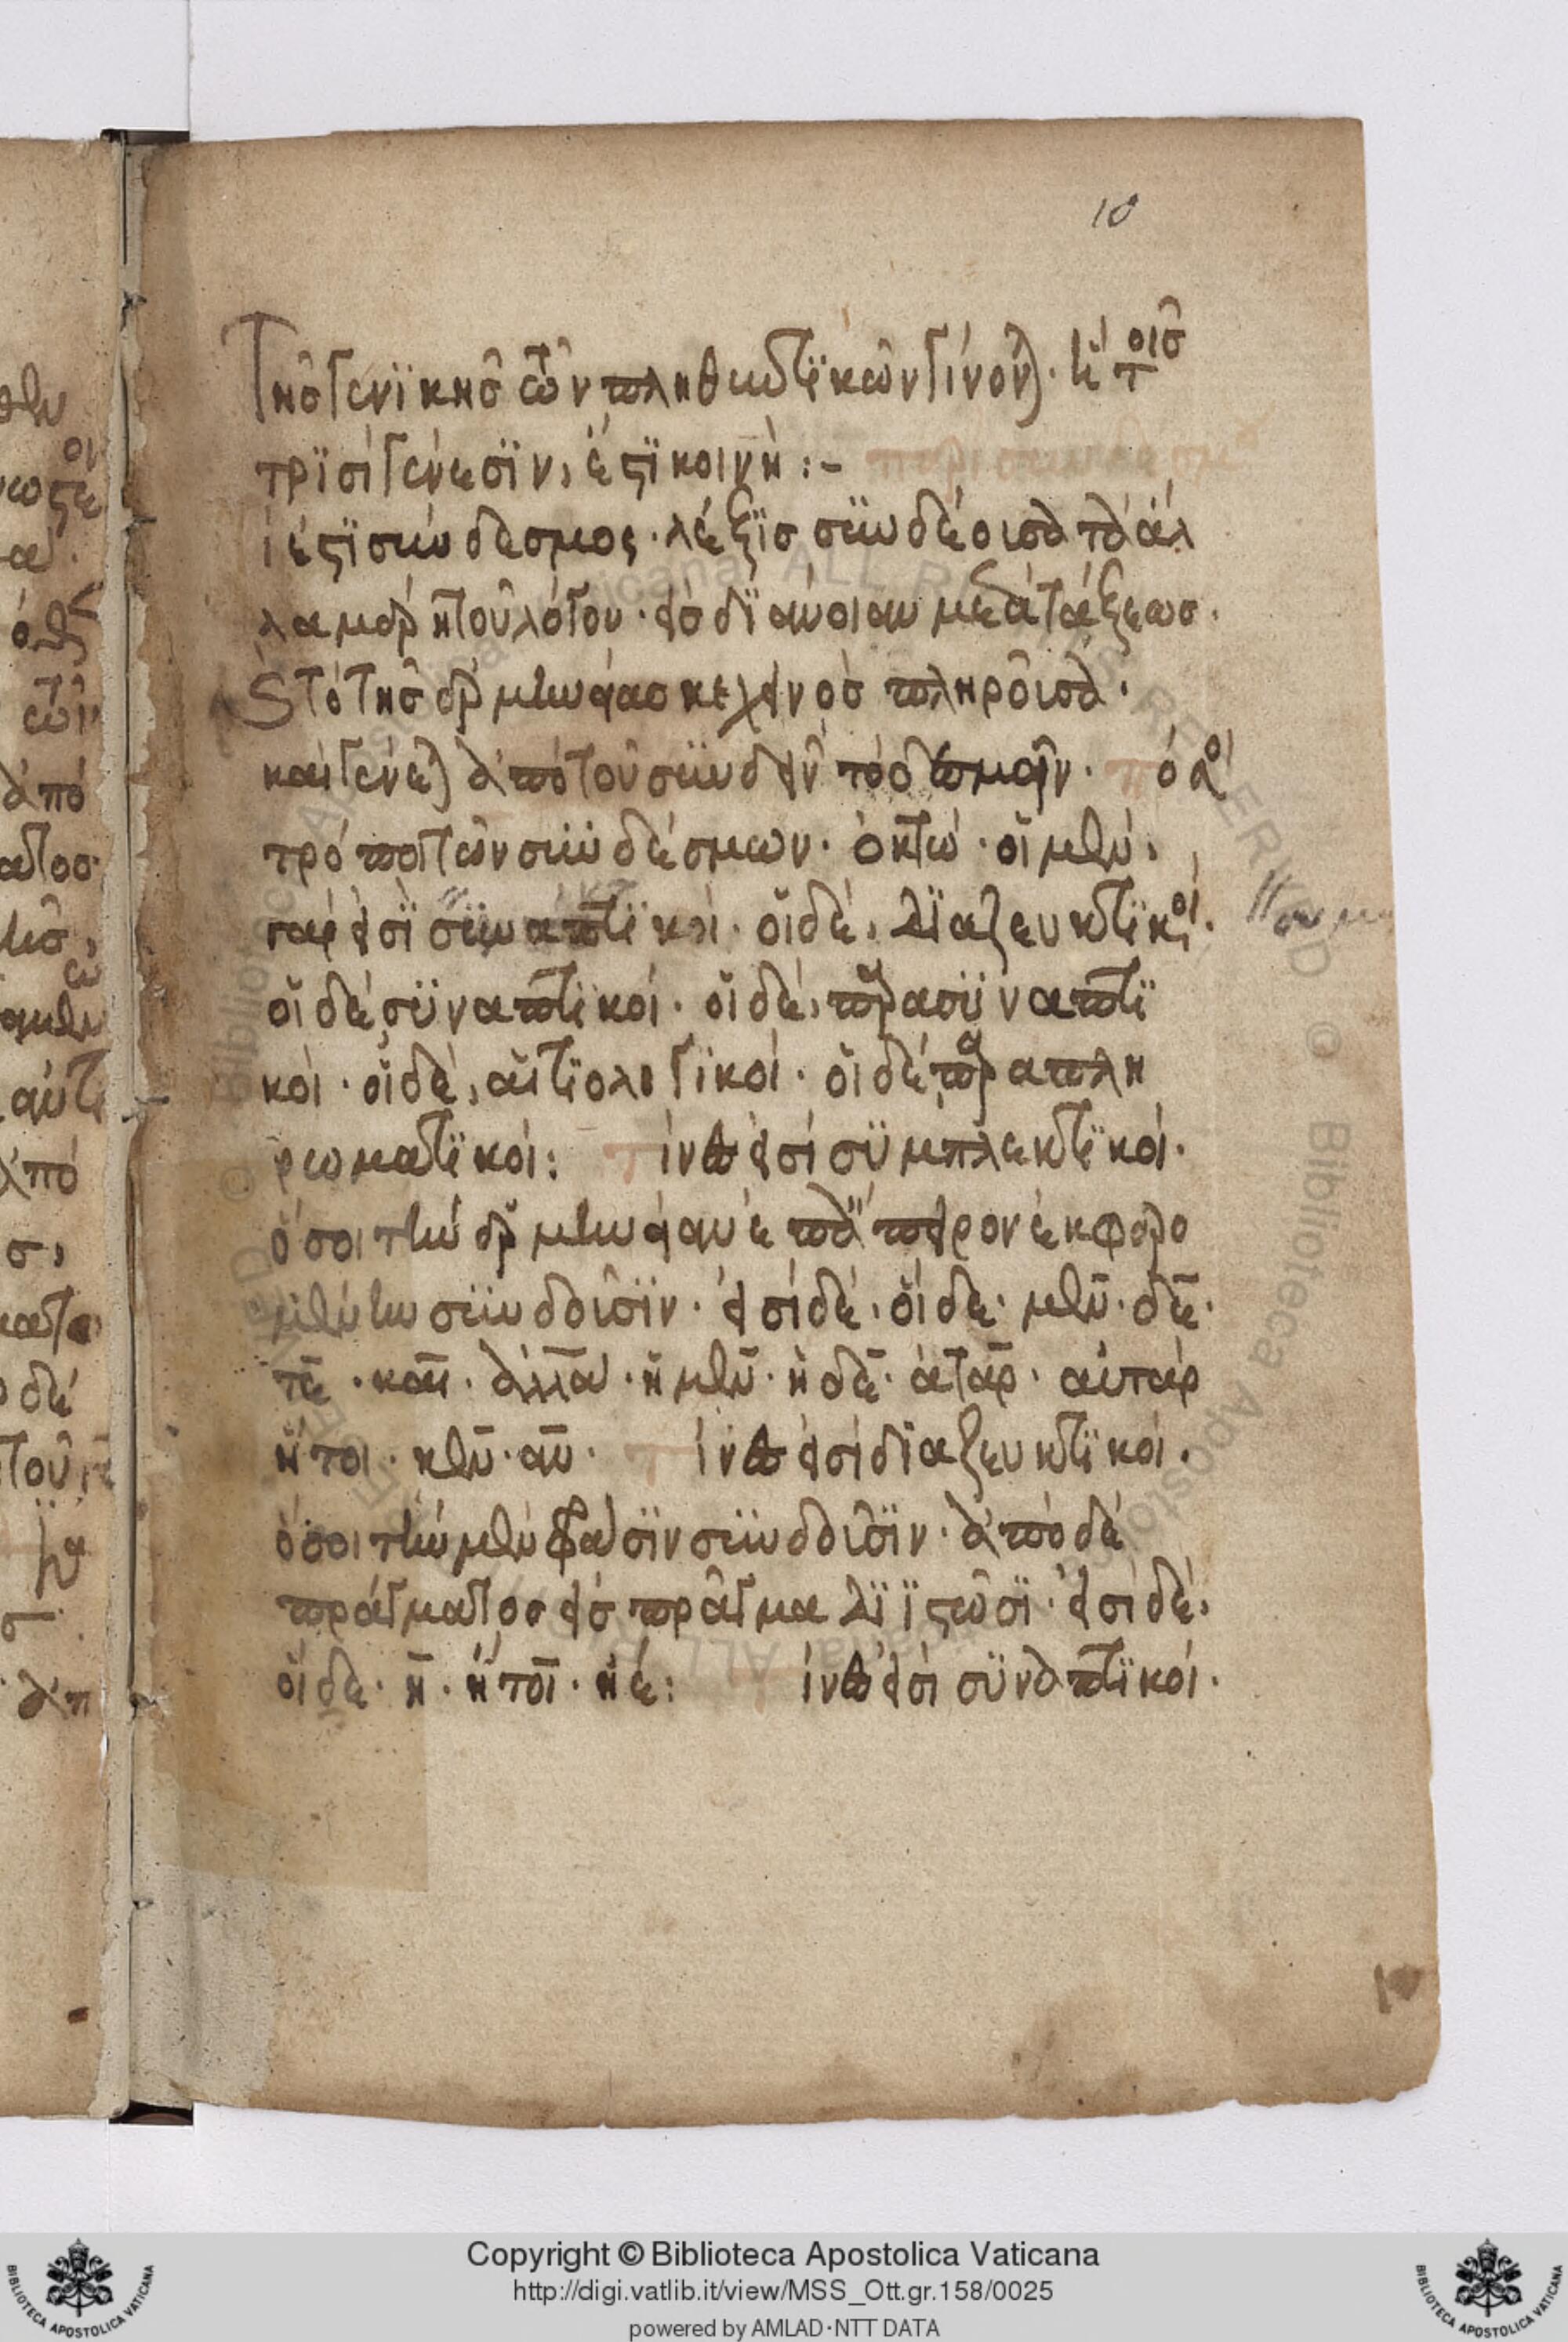 10
Τῆς γενικῆς τῶν πληθυντικῶν γίνονται. καὶ τοῖς
τρισὶ γένεσιν, ἐστὶ κοινή :- περὶ συνδέσμου
ἐστὶ σύνδεσμος. λέξις συνδέουσα τὰ ἄλ
λα μέρη τοῦ λόγου. εἰς διάνοιαν μετὰ τάξεως.
καὶ τὸ τῆς ἑρμηνείας κεχηνὸς πληροῦσα.
καὶ γένεται ἀπὸ τοῦ συνδεῖν τὸ δεσμεῖν. πόσοι
τρόποι τῶν συνδέσμων. ὀκτώ. οἱ μὲν,
γάρ εἰσι συναπτικοί. οἱ δὲ, διαζευκτικοί.
οἱ δὲ συναπτικοί. οἱ δὲ, παρασυναπτι
κοί. οἱ δὲ, αἰτιολογικοί. οἱ δὲ παραπλη
ρωματικοί: τίνες εἰσὶ συμπλεκτικοί.
ὅσοι τὴν ἑρμηνείαν ἐπ' ἄπειρον ἐκφερο
μένην συνδέουσιν. εἰσὶ δὲ. οἵδε. μὲν. δὲ.
τὲ. καὶ. ἀλλὰ. ἠμὲν. ἠδὲ. ἀτὰρ. αὐτὰρ
ἤτοι. κὲν. ἂν. τίνες εἰσὶ διαζευκτικοί.
ὅσοι τὴν μὲν φράσιν συνδέουσιν. ἀπὸ δὲ
πράγματος εἰς πρᾶγμα διϊστῶσι. εἰσὶ δὲ,
οἵδε. ἢ. ἤτοι. ἠέ: τίνες εἰσὶ συναπτικοί.
Copyright © Biblioteca Apostolica Vaticana
http://digi.vatlib.it/view/MSS_Ott.gr.158/0025
powered by AMLAD·NTT DATA